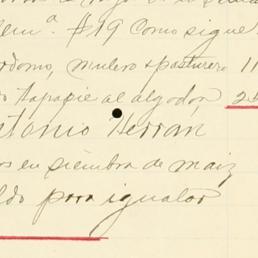 em.ª #19 Como sigue
ordomo, mulero & pasturero 11
tapapie al algodón 25
tonio Herran
os en siembra de maiz
ldo para igualar